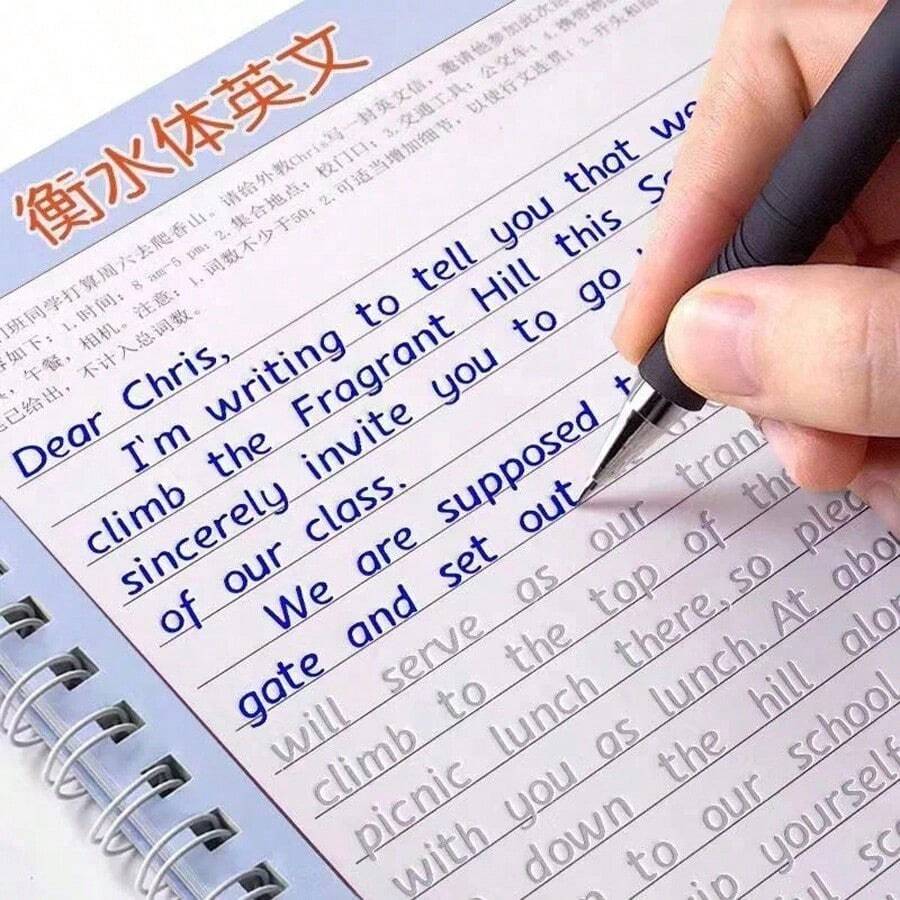 衡水体英文
班同学打算周六去爬香山。请给外教Chris写一封英文信，邀请他参加此次活
如下：1.时间：8 am-5 pm；2.集合地点：校门口；3.交通工具：公交车；4.携带物
午餐，相机。注意：1.词数不少于50；2.可适当增加细节，以使行文连贯；3.开头和
已给出，不计入总词数。
Dear Chris,
I'm writing to tell you that we
climb the Fragrant Hill this
sincerely invite you to go
of our class.
We are supposed
gate and set out
will serve as our
climb to the top of
picnic lunch there, so
with you as lunch. At
down the hill
to our school
yourself